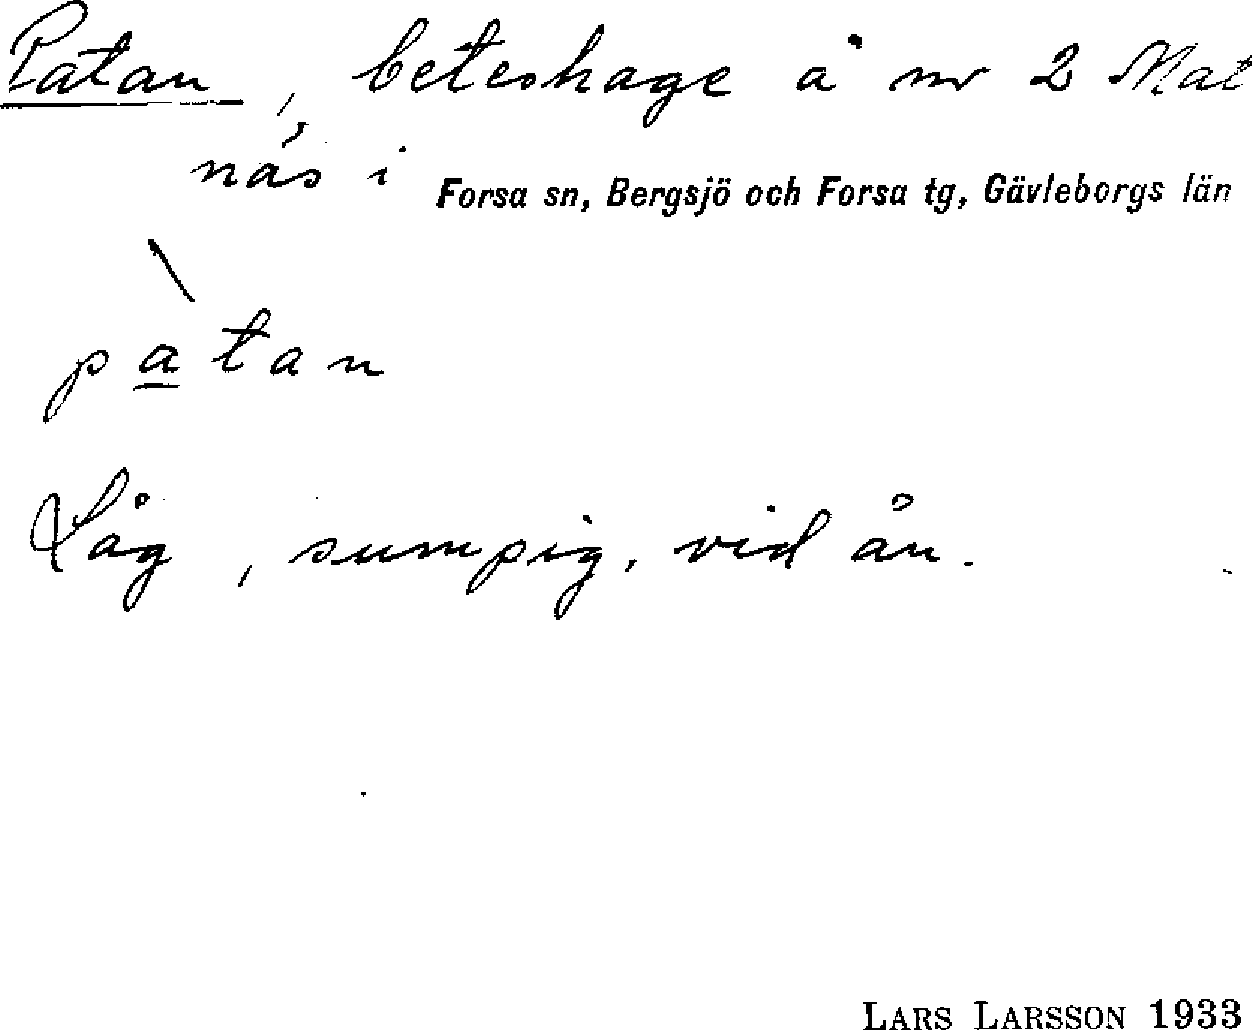 Patan, beteshage å nr 2 Mat
näs i Forsa sn, Bergsjö och Forsa tg, Gävleborgs län
pàtan
Låg, sumpig, vid ån.
LARS LARSSON 1933